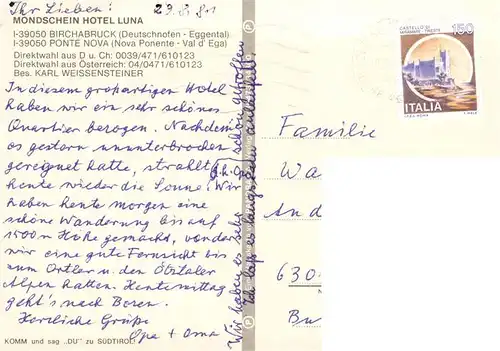 Ihr Lieben! 29.8.81
MONDSCHEIN HOTEL LUNA
I-39050 BIRCHABRUCK (Deutschnofen - Eggental)
I-39050 PONTE NOVA (Nova Ponente - Val d' Ega)
Direktwahl aus D u. Ch: 0039/471/610123
Direktwahl aus Österreich: 04/0471/610123
Bes. KARL WEISSENSTEINER
In diesem großartigen Hotel
haben wir ein sehr schönes
Quartier bezogen. Nachdem
es gestern ununterbrochen
geregnet hatte, strahlt
heute wieder die Sonne. Wir
haben heute morgen eine
schöne Wanderung bis auf
1500 m Höhe gemacht, von der
wir eine gute Fernsicht bis
zum Ortler u. den Ötztaler
Alpen hatten. Heute mittag
geht's nach Bozen.
Herzliche Grüße
Opa + Oma
KOMM und sag „DU" zu SÜDTIROL!
Wir haben es sehr schön getroffen
Ich laß es langsam angehen!
CASTELLO DI
MIRAMARE - TRIESTE
150
ITALIA
Familie
Wa
An d
630
Bu